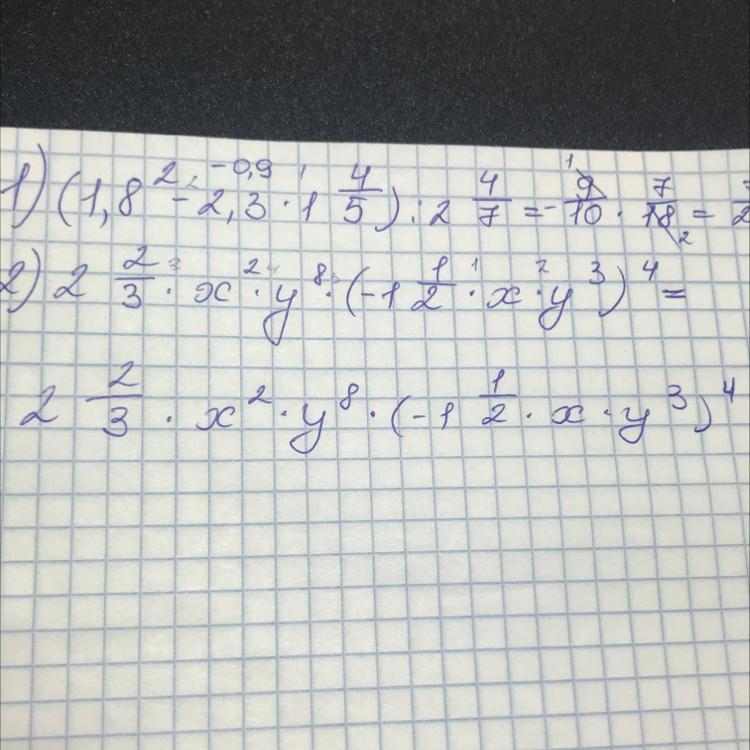 1) (1,8² - 2,3 · 1 4/5) : 2 4/7 = - 9/10 · 7/18 =
-0,9
1 2
2) 2 2/3 · x² · y⁸ · (-1 1/2 · x · y³)⁴ =
2 2/3 · x² · y⁸ · (-1 1/2 · x · y³)⁴